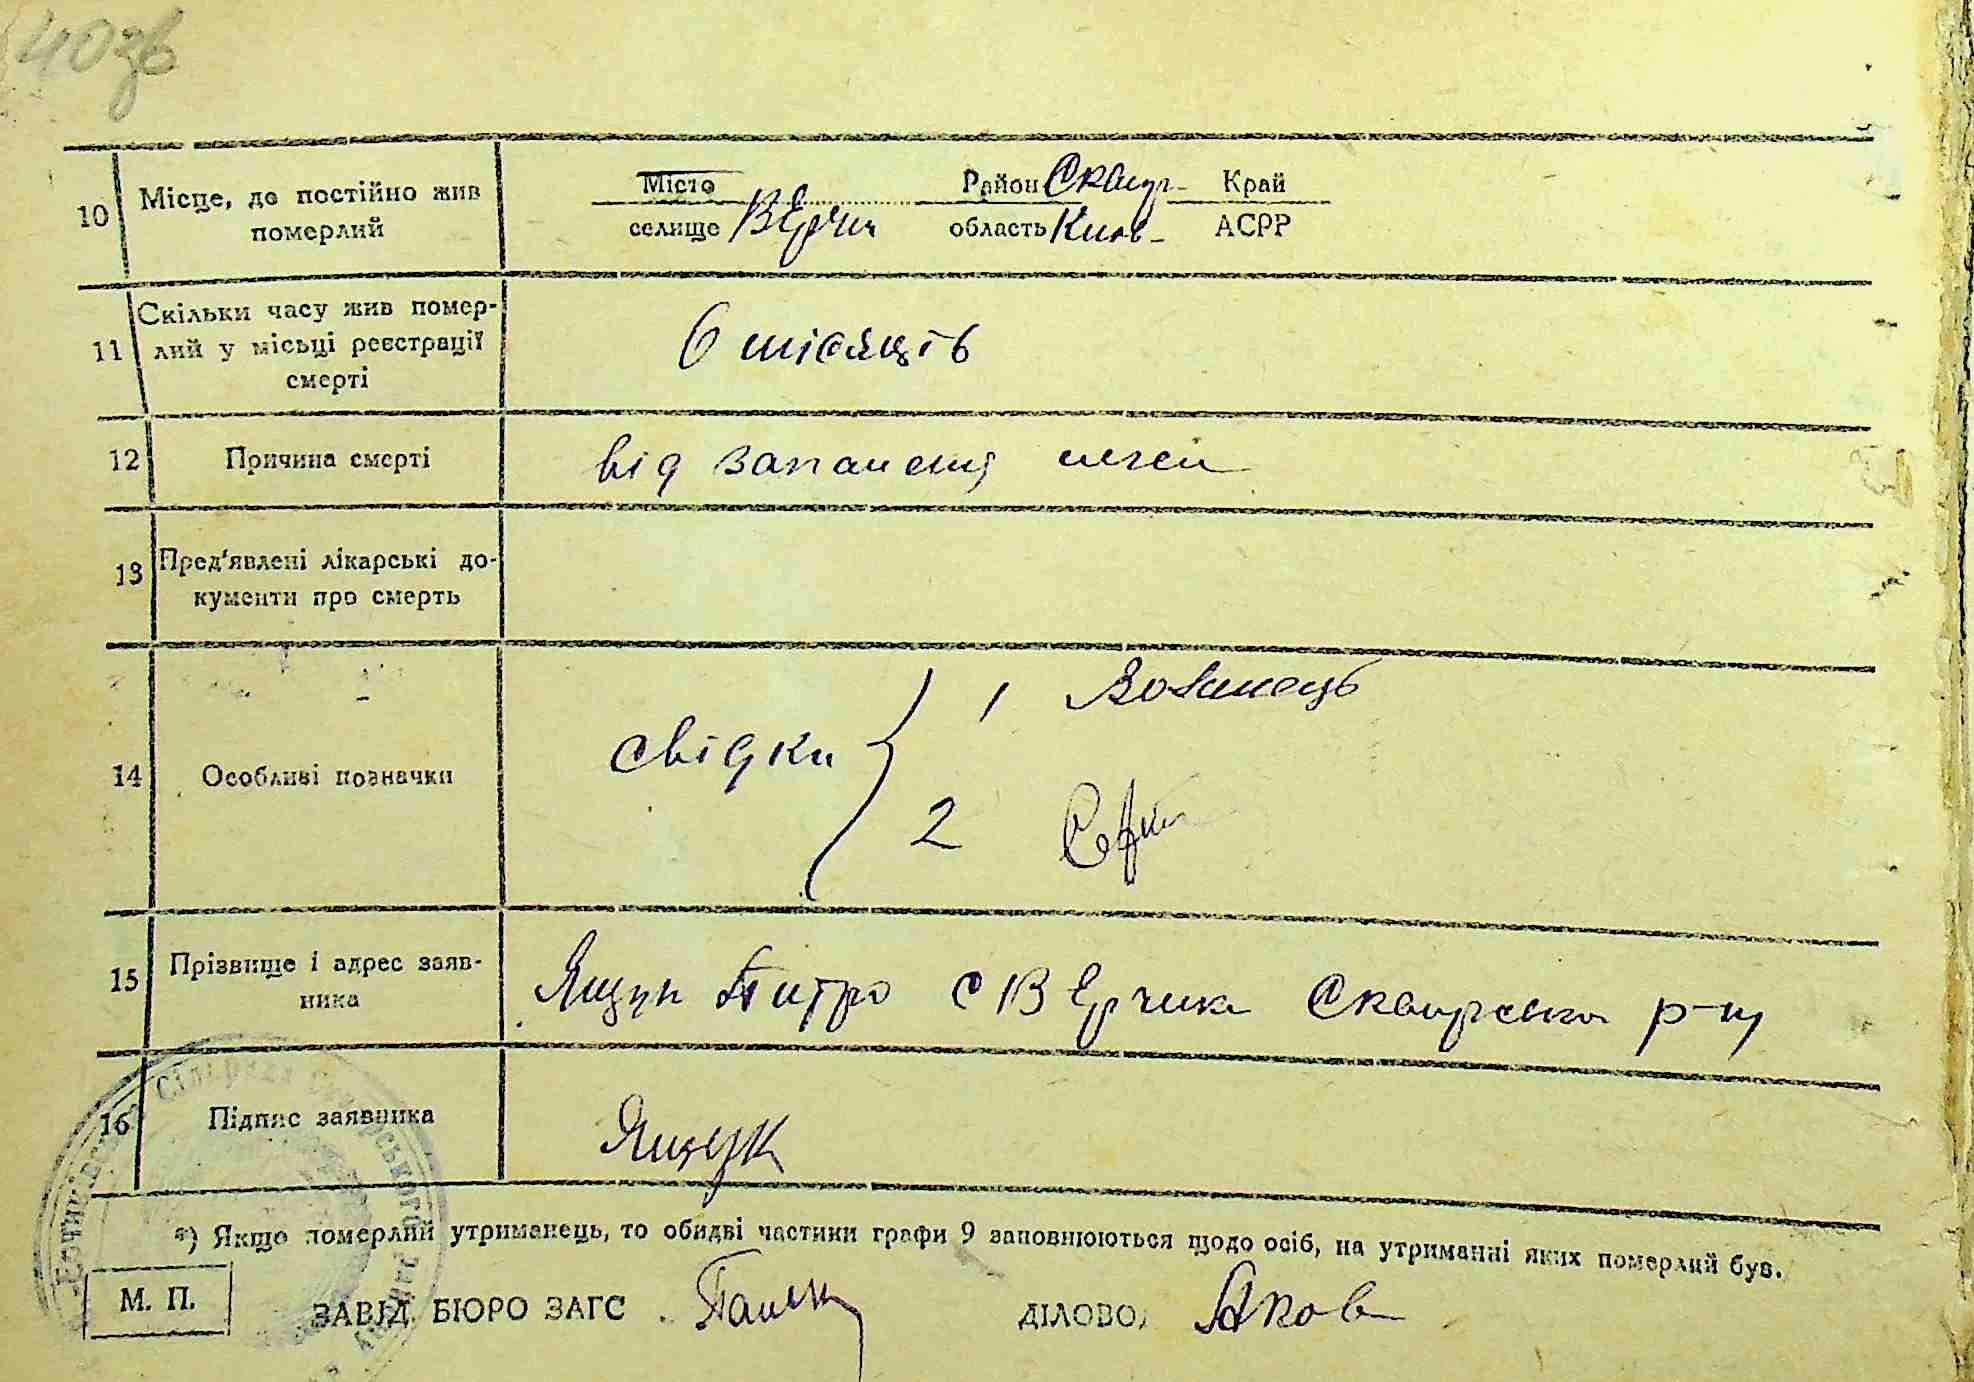 40зв
10 Місце, де постійно жив померлий
Місто Район Сквир- Край
селище Верчик область Київ- АСРР
11 Скільки часу жив померлий у місьці реєстрації смерті
6 місяців
12 Причина смерті
від запаленя легень
13 Пред'явлені лікарські документи про смерть
14 Особливі позначки
свідки
1
2
15 Прізвище і адрес заявника
Ящук Питро с Верчика Сквирська р-ну
16 Підпис заявника
Ящук
*) Якщо померлий утриманець, то обидві частини графи 9 заповнюються щодо осіб, на утриманні яких померлий був.
М. П.
ЗАВІД. БЮРО ЗАГС
ДІЛОВОД